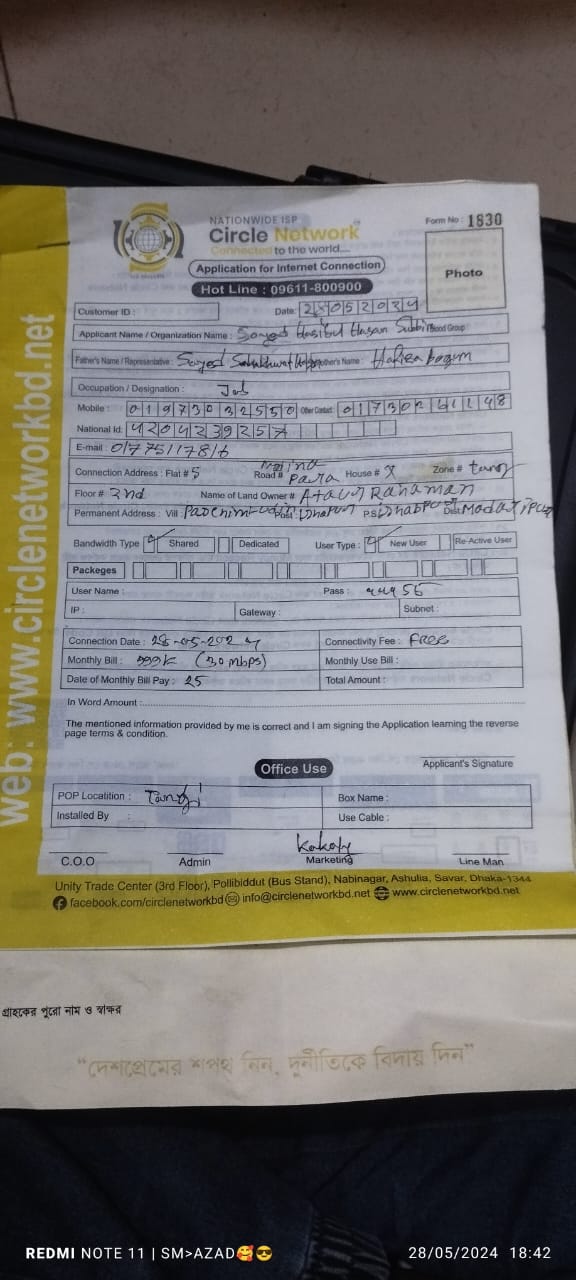 NATIONWIDE ISP
Circle Network
Connected to the world....
Form No : 1830
Application for Internet Connection
Hot Line : 09611-800900
Photo
Customer ID :
Date: 28052024
Applicant Name / Organization Name : Sayed Hasibul Hasan Sabbir Blood Group :
Father's Name / Representative : Sayed Mother's Name : Hafiza begum
Occupation / Designation : Job
Mobile : 01973032550 Other Contact: 01730261148
National Id: 4204239257
E-mail : 01775117816
Connection Address : Flat # 5 Road # Para House # X Zone # tongi
Floor # 2nd Name of Land Owner # Ataur Rahaman
Permanent Address : Vill Post PS Dist Madaripur
Bandwidth Type Shared Dedicated User Type : New User Re-Active User
Packeges
User Name : Pass :
IP : Gateway : Subnet :
Connection Date : 28-05-2024 Connectivity Fee : FREE
Monthly Bill : (30 mbps) Monthly Use Bill :
Date of Monthly Bill Pay : 25 Total Amount :
In Word Amount :
The mentioned information provided by me is correct and I am signing the Application learning the reverse
page terms & condition.
Applicant's Signature
Office Use
POP Locatition : Tongi Box Name :
Installed By : Use Cable :
Kakoly
C.O.O Admin Marketing Line Man
Unity Trade Center (3rd Floor), Pollibiddut (Bus Stand), Nabinagar, Ashulia, Savar, Dhaka-1344
facebook.com/circlenetworkbd info@circlenetworkbd.net www.circlenetworkbd.net
web: www.circlenetworkbd.net
গ্রাহকের পুরো নাম ও স্বাক্ষর
"দেশপ্রেমের শপথ নিন, দুর্নীতিকে বিদায় দিন"
REDMI NOTE 11 | SM>AZAD🥰😎
28/05/2024 18:42